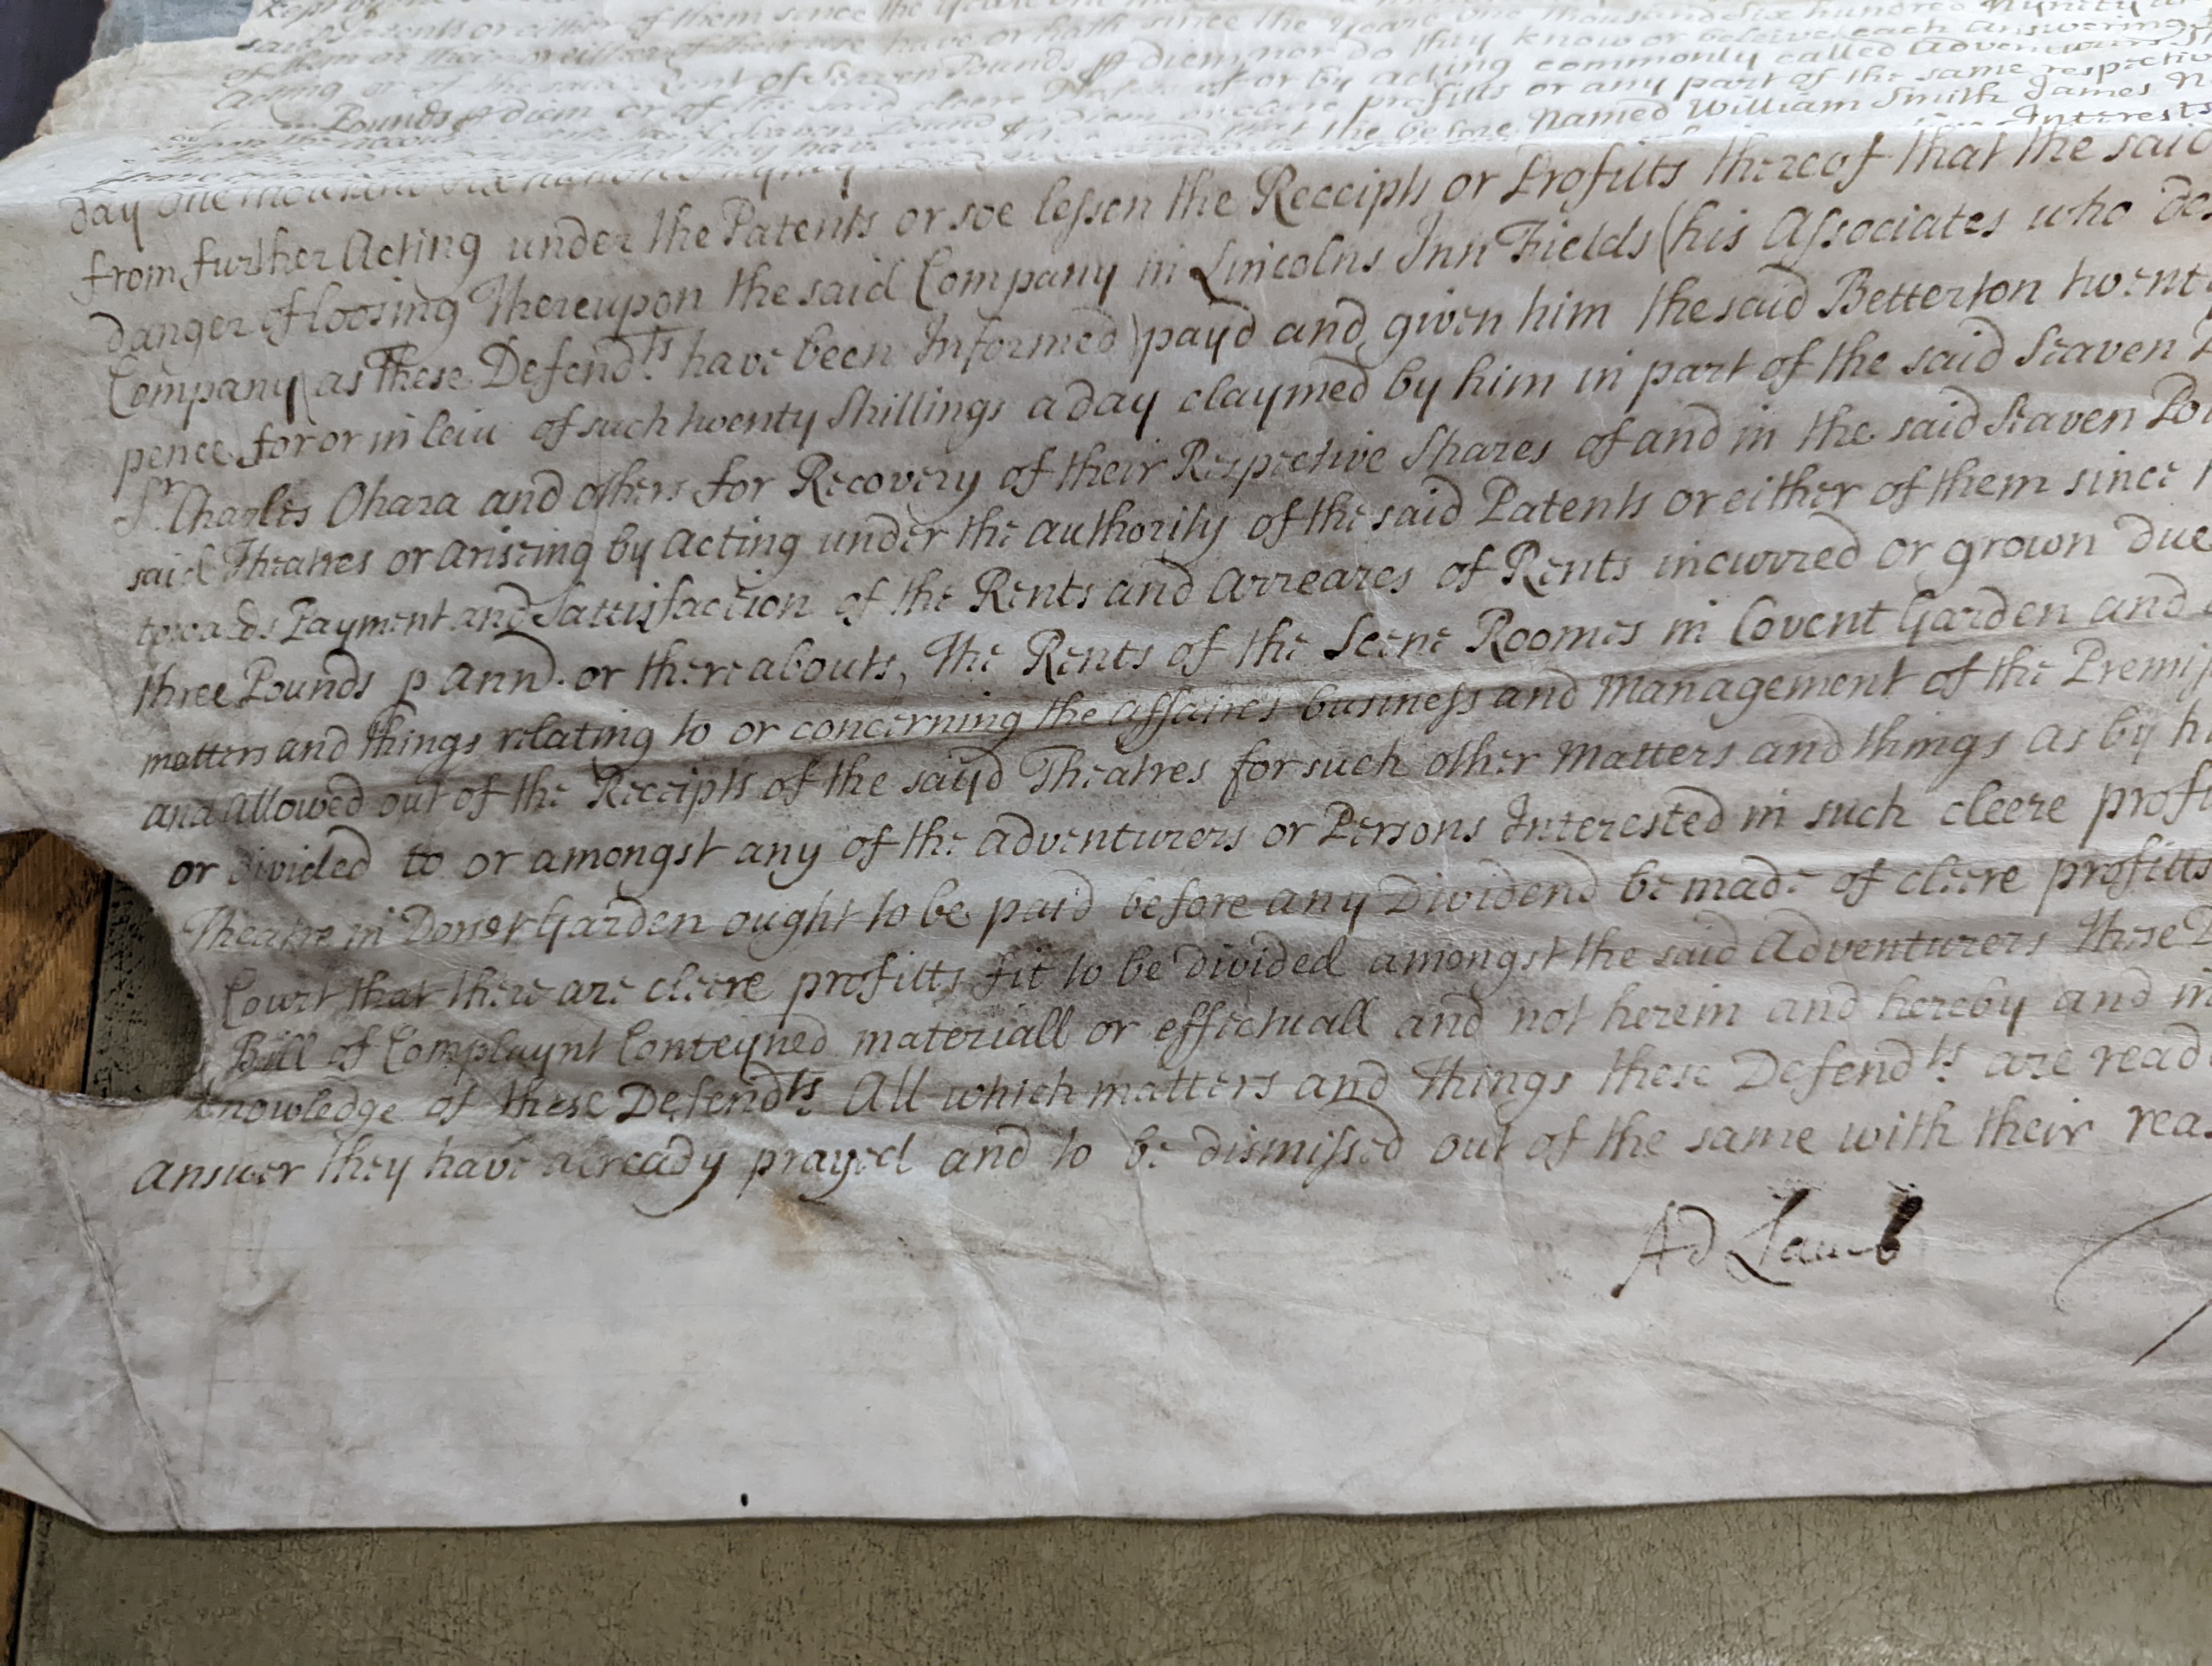 said Patents or either of them since the yeare one
of them or their or either of their use have or hath since the yeare one thousand six hundred Nynity
Acting or of the said Rent of Seaven Pounds p diem nor do they know or beleive each answering
Pounds p diem or of the said cleere profitts of or by acting commonly called Adventurers
profitts or any part of the same respective
the before Named William Smith James
day one thousand six hundred nynety Interests
from further Acting under the Patents or soe lessen the Receipts or Profitts thereof that the said
danger of loosing Thereupon the said Company in Lincolns Inn Fields (his Associates who
Company (as These Defendts. have been Informed) payd and given him the said Betterton twent
pence for or in leiu of such twenty Shillings a day claymed by him in part of the said Seaven
Sr. Charles Ohara and others for Recovery of their Respective Shares of and in the said Seaven Po
said Theatres or ariseing by Acting under the authority of the said Patents or either of them since
towards Payment and Sattisfaction of the Rents and Arreares of Rents incurred or grown due
three Pounds p Ann. or thereabouts, The Rents of the Scene Roomes in Covent Garden and
matters and things relating to or concerning the affaires business and Management of the Premis
and allowed out of the Receipts of the sayd Theatres for such other Matters and things as by h
or divided to or amongst any of the adventurers or Persons Interested in such cleere profi
Theatre in Dorset Garden ought to be paid before any Dividend be made of cleere profitts
Court that there are cleere profitts fit to be divided amongst the said Adventurers These D
Bill of Complaynt Conteyned materiall or effectuall and not herein and hereby and in
knowledge of these Defendts. All which matters and things these Defendts. are read
answer they have already prayed and to be dismissed out of the same with their reas
Ad Lamb